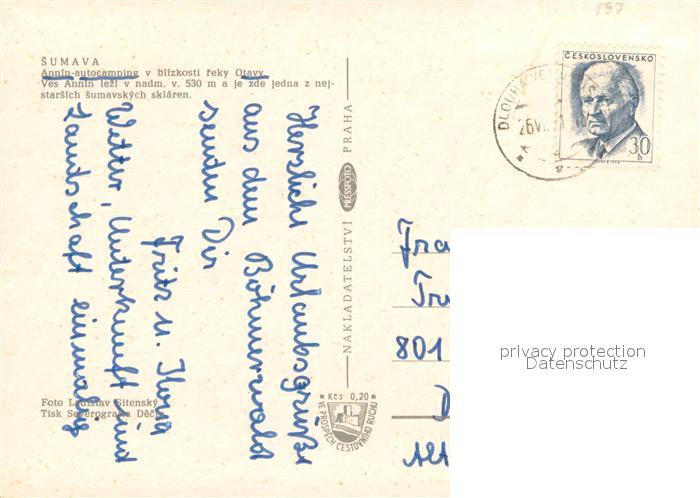 897
ŠUMAVA
Annín-autocamping v blízkosti řeky Otavy
Ves Annín leží v nadm. v. 530 m a je zde jedna z nej-
starších šumavských skláren.
Herzliche Urlaubsgrüße
aus dem Böhmerwald
senden Dir
Fritz u. Ilona
Wetter, Unterkunft und
Landschaft einmalig
Foto Ladislav Sitenský
Tisk Severografia Děčín
NAKLADATELSTVÍ PRESSFOTO PRAHA
Kčs 0,20
VE PROSPĚCH CESTOVNÍHO RUCHU
ČESKOSLOVENSKO
30
h
DLOUHÁ VES
26.VI
Fra
801
D
privacy protection
Datenschutz